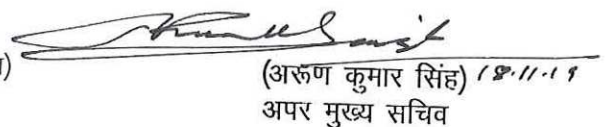 (अरूण कुमार सिंह) 18.11.19
अपर मुख्य सचिव